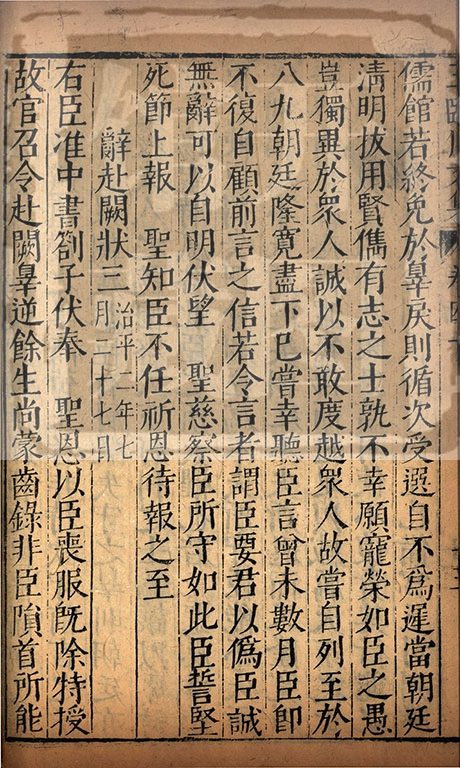 儒館若終免於辠戾則循次受選自不爲遲當朝廷
淸明拔用賢儁有志之士孰不幸願寵榮如臣之愚
豈獨異於衆人誠以不敢度越衆人故嘗自列至於
八九朝廷隆寛盡下已嘗幸聽臣言曾未數月臣卽
不復自顧前言之信若令言者謂臣要君以僞臣誠
無辭可以自明伏望 聖慈察臣所守如此臣誓堅
死節上報 聖知臣不任祈恩待報之至
辭赴闕狀三 治平二年七月二十七日
右臣准中書劄子伏奉 聖恩以臣喪服旣除特授
故官召令赴闕辠逆餘生尚蒙齒錄非臣隕首所能